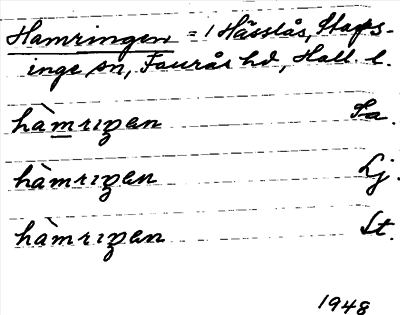 Hamringen = 1 Hässlås, Slaps-
inge sn, Faurås hd, Hall. l.
hàmrıŋen Sa.
hàmrıŋen Lj.
hàmrıŋen St.
1948